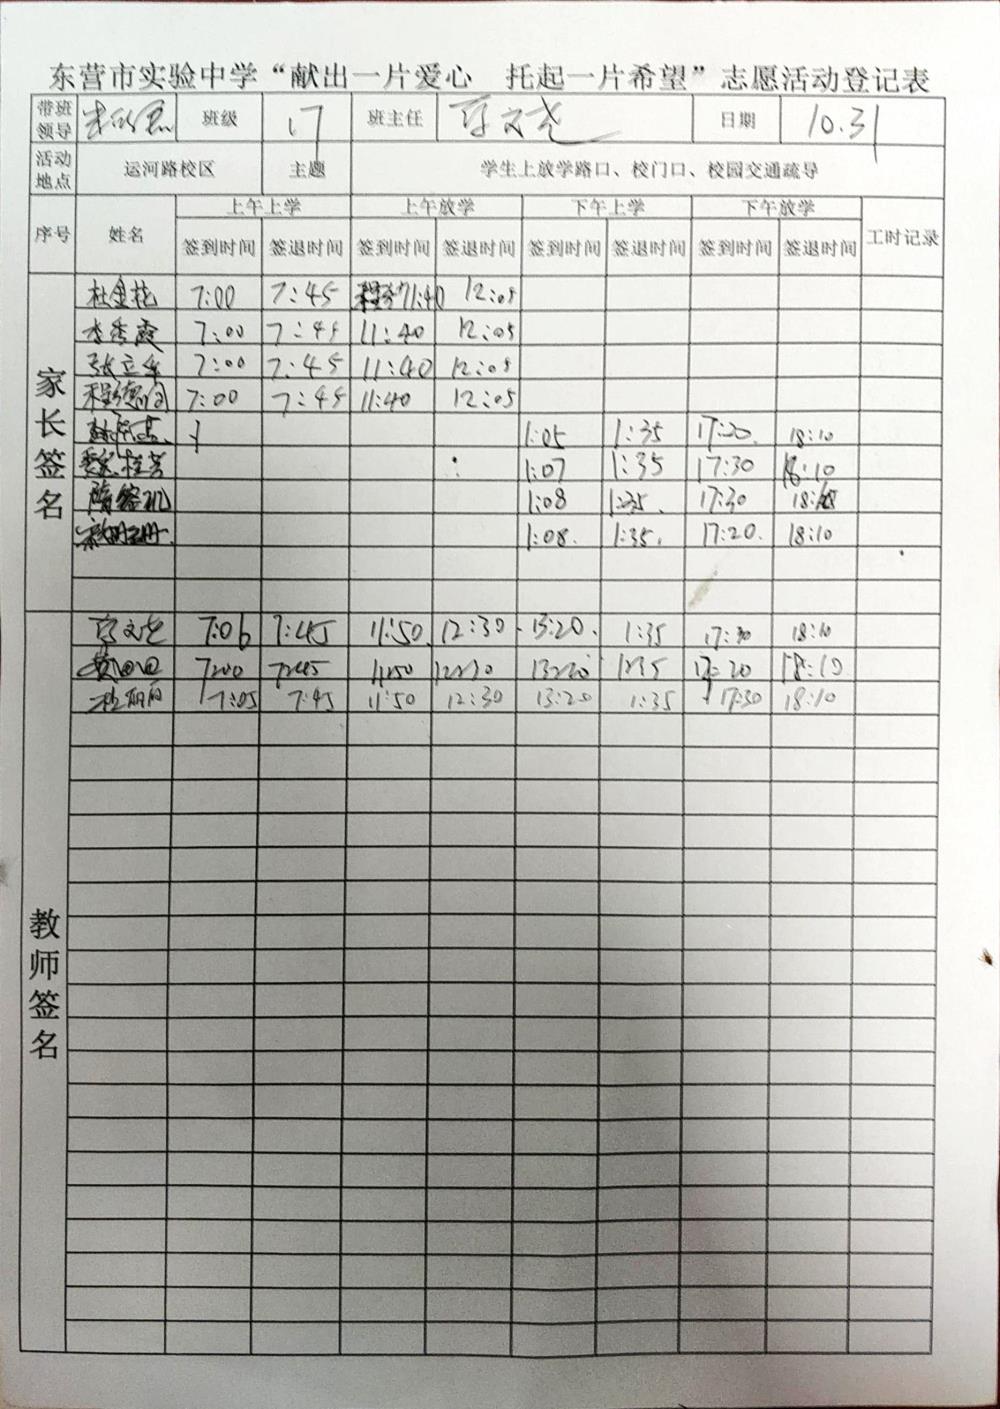 东营市实验中学“献出一片爱心 托起一片希望”志愿活动登记表
带班领导 班级 17 班主任 日期 10.31
活动地点 运河路校区 主题 学生上放学路口、校门口、校园交通疏导
序号 姓名 上午上学 上午放学 下午上学 下午放学 工时记录
签到时间 签退时间 签到时间 签退时间 签到时间 签退时间 签到时间 签退时间
家长签名
杜金花 7:00 7:45 11:40 12:05
李秀霞 7:00 7:45 11:40 12:05
张立华 7:00 7:45 11:40 12:05
7:00 7:45 11:40 12:05
1:05 1:35 17:20 18:10
魏桂芳 1:07 1:35 17:30 18:10
1:08 1:35 17:30
1:08 1:35 17:20 18:10
教师签名
7:06 7:45 11:50 12:30 13:20 1:35 17:30 18:10
7:00 7:45 11:50 12:30 13:20 1:35 17:20 18:10
7:05 7:45 11:50 12:30 13:20 1:35 17:30 18:10